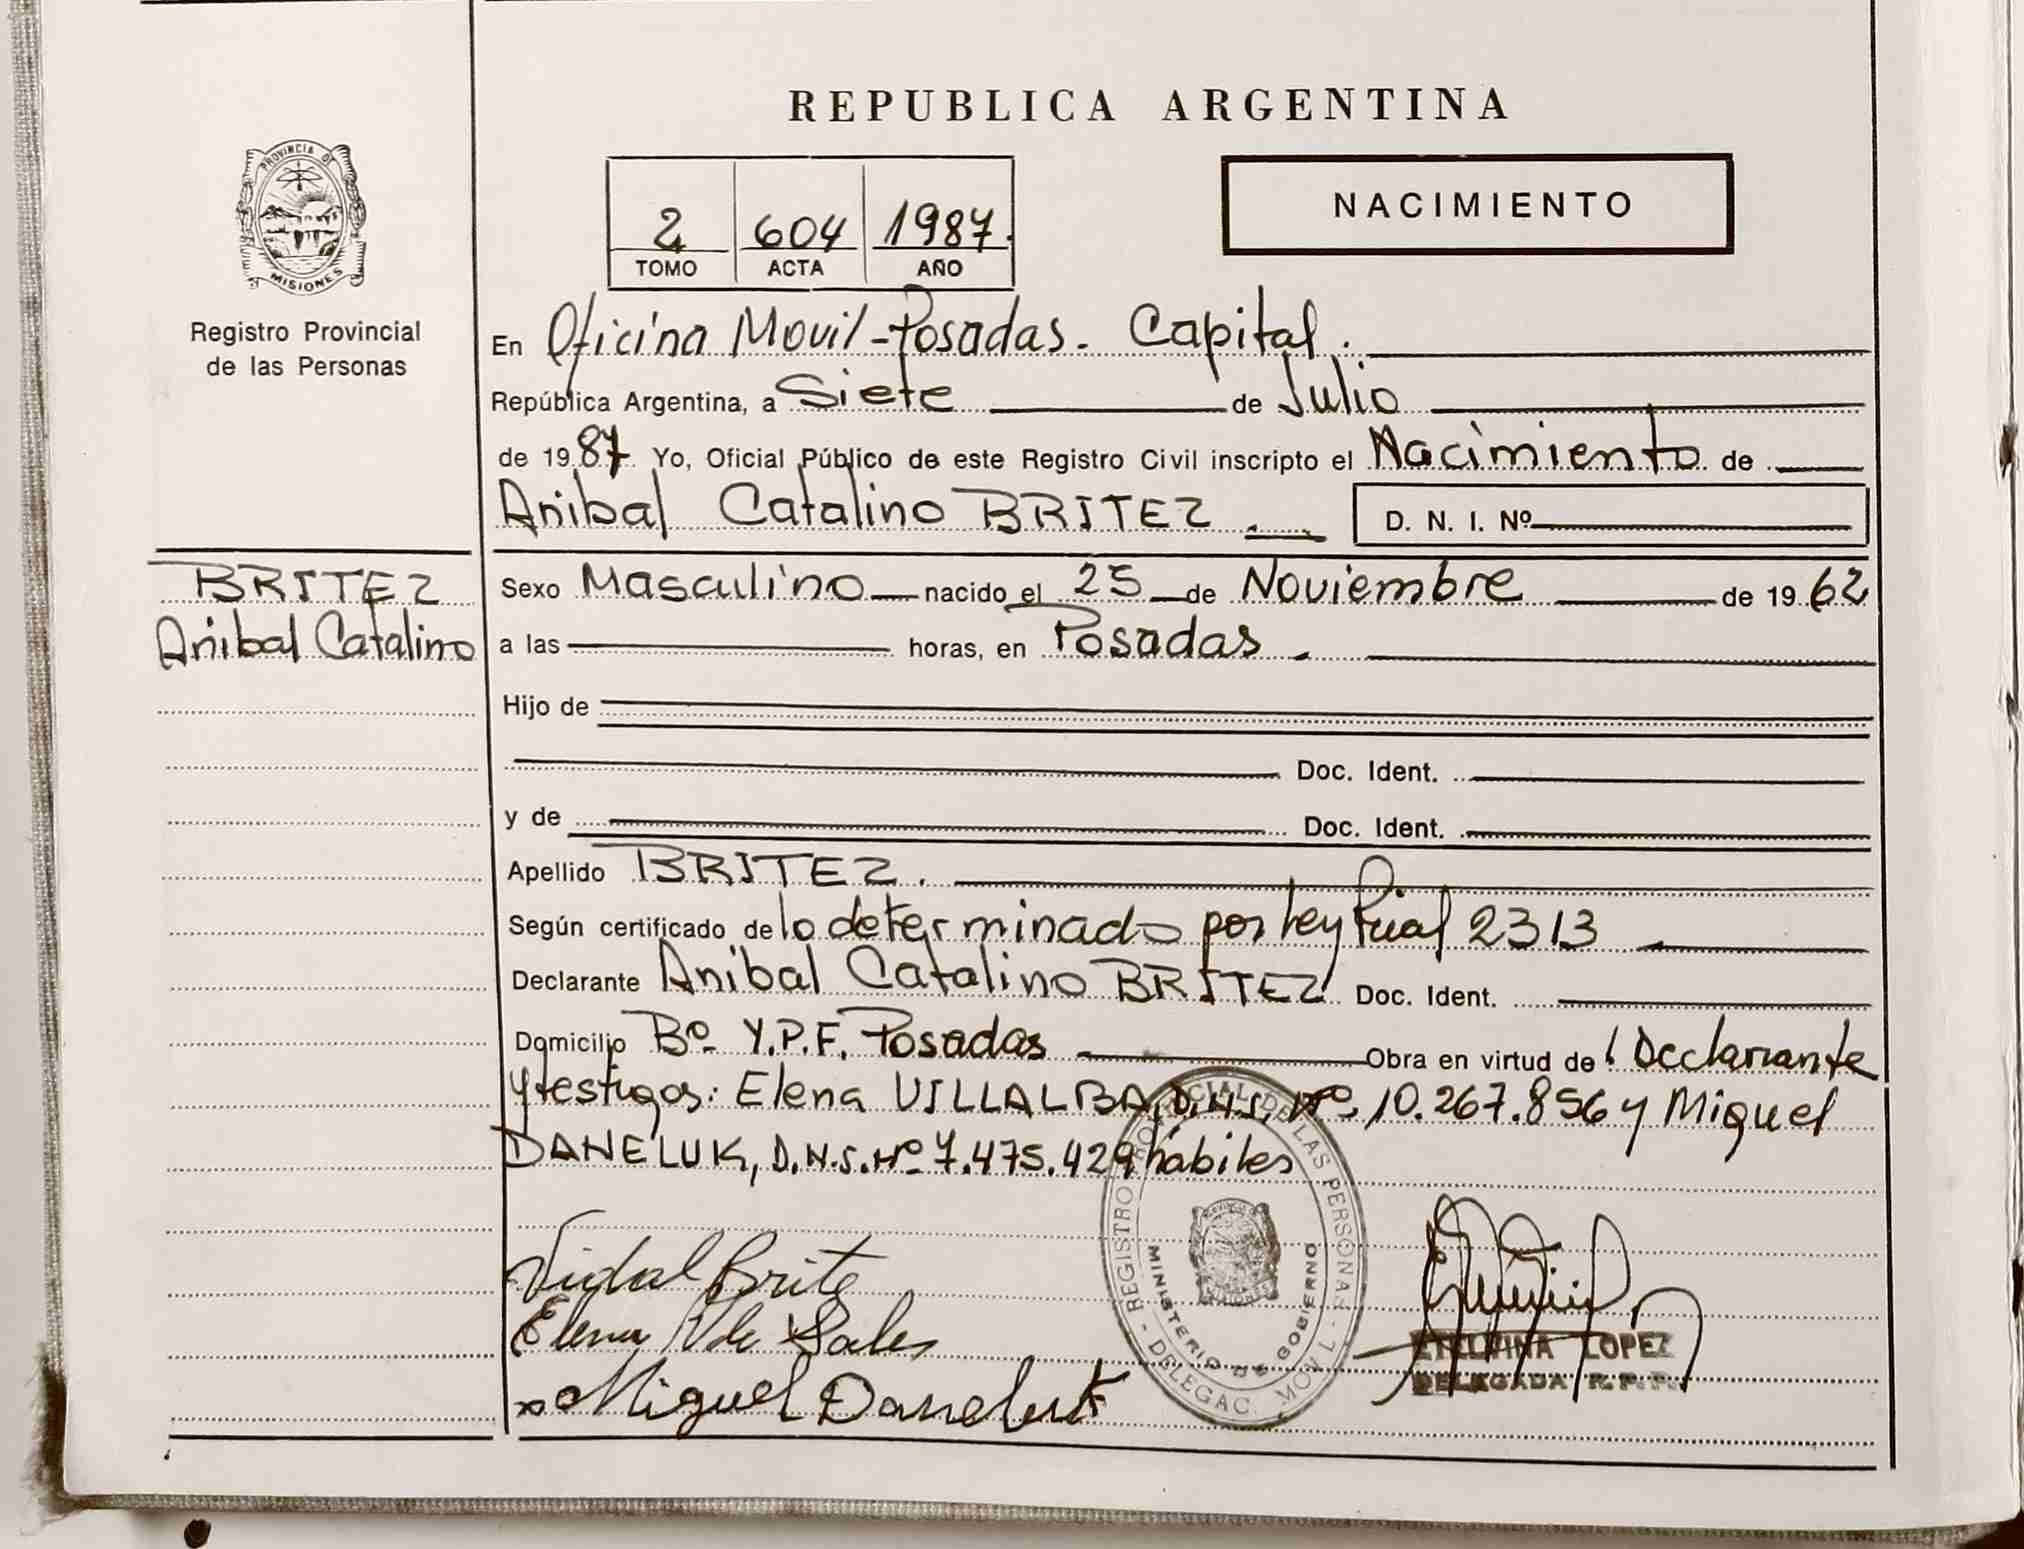 REPUBLICA ARGENTINA
PROVINCIA DE
MISIONES
Registro Provincial
de las Personas
2 604 1987
TOMO ACTA AÑO
NACIMIENTO
En Oficina Movil - Posadas. Capital.
República Argentina, a Siete de Julio
de 1987 Yo, Oficial Público de este Registro Civil inscripto el Nacimiento de
Anibal Catalino BRITEZ. D. N. I. Nº
BRITEZ
Anibal Catalino
Sexo Masculino nacido el 25 de Noviembre de 1962
a las horas, en Posadas.
Hijo de
Doc. Ident.
y de Doc. Ident.
Apellido BRITEZ.
Según certificado de lo determinado por ley 2313
Declarante Anibal Catalino BRITEZ Doc. Ident.
Domicilio Bº Y.P.F. Posadas Obra en virtud de Declarante
y testigos: Elena VILLALBA, D.N.I. Nº 10.267.856 y Miguel
DANELUK, D.N.I. Nº 7.475.429 hábiles
Vidal Brite
Elena V de Sales
Miguel Daneluk
REGISTRO PROVINCIAL DE LAS PERSONAS - DELEGAC. MOVIL
MINISTERIO DE GOBIERNO
LOPEZ
DELEGADA R.P.P.